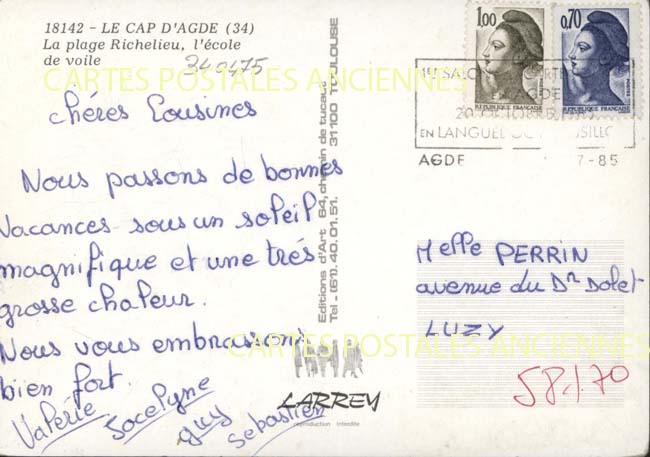 18142 - LE CAP D'AGDE (34)
La plage Richelieu, l'école
de voile
340475
CARTES POSTALES ANCIENNES
chéres Cousines
Nous passons de bonnes
vacances sous un soleil
magnifique et une très
grosse chaleur.
Nous vous embrassons
bien fort.
Valérie Jocelyne
guy Sebastien
Editions d'Art 64, chemin de tucaut 31100 TOULOUSE
Tel - (61. 40.01.51.
LARREY
reproduction interdite
1.00
0.70
REPUBLIQUE FRANÇAISE
REPUBLIQUE FRANÇAISE
1er SALON
EN LANGUEDOC
AGDE 7-85
Melle PERRIN
avenue du Dr Dolet
LUZY
CARTES POSTALES ANCIENNES
58170